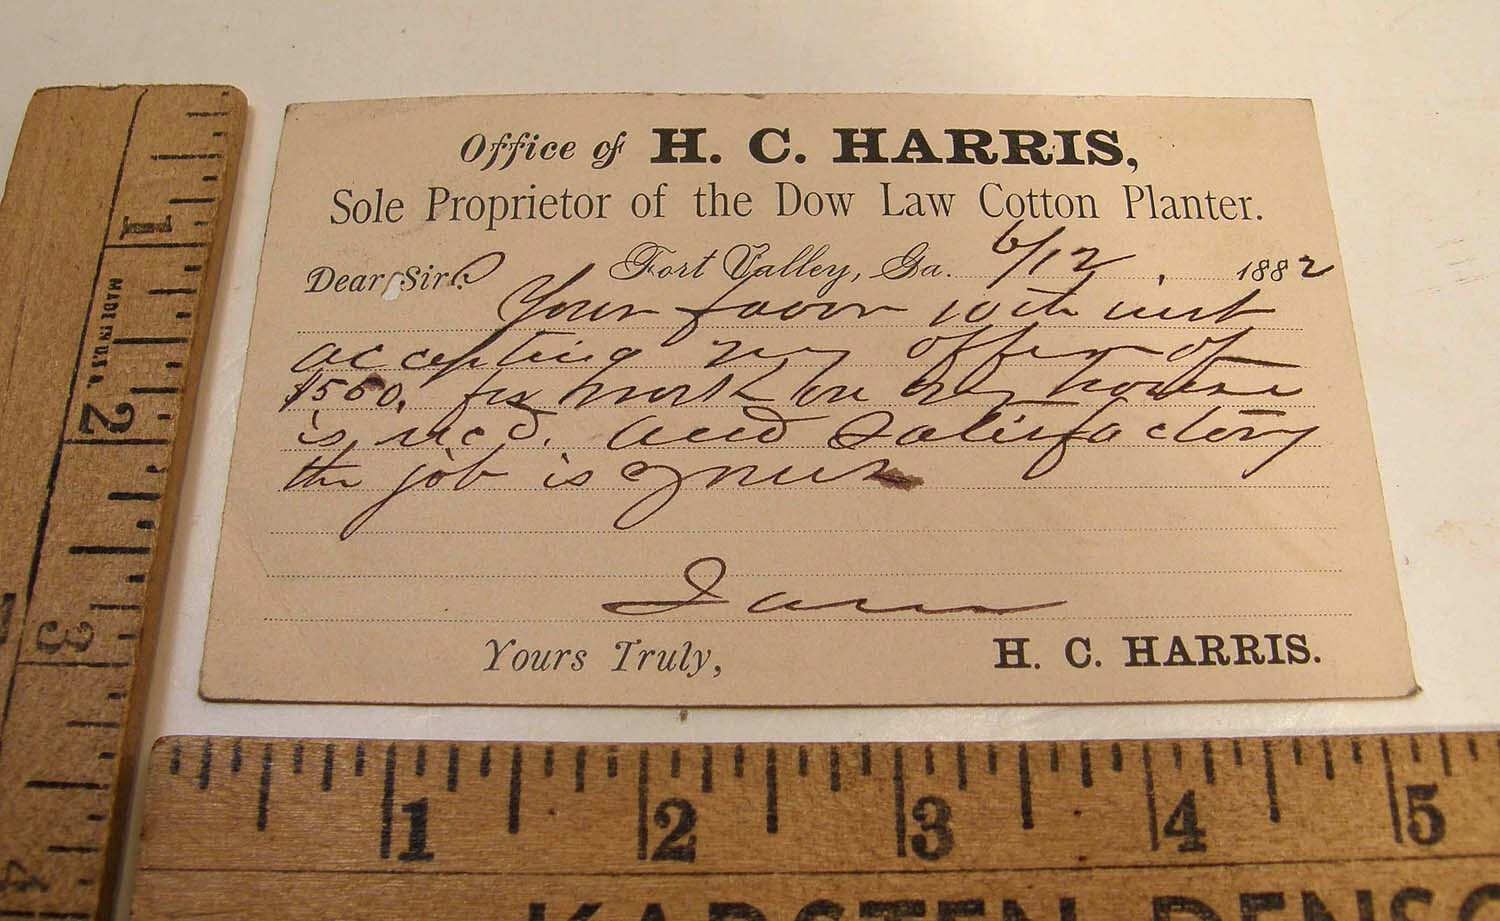 Office of H. C. HARRIS,
Sole Proprietor of the Dow Law Cotton Planter.
Fort Valley, Ga. 6/12, 1882
Dear Sir.
Your favor 10th inst
accepting my offer of
$550. for work on my house
is recd. and Satisfactory
the job is yours
I am
Yours Truly, H. C. HARRIS.
1
2
3
4
MADE IN U.S.A.
1 2 3 4 5